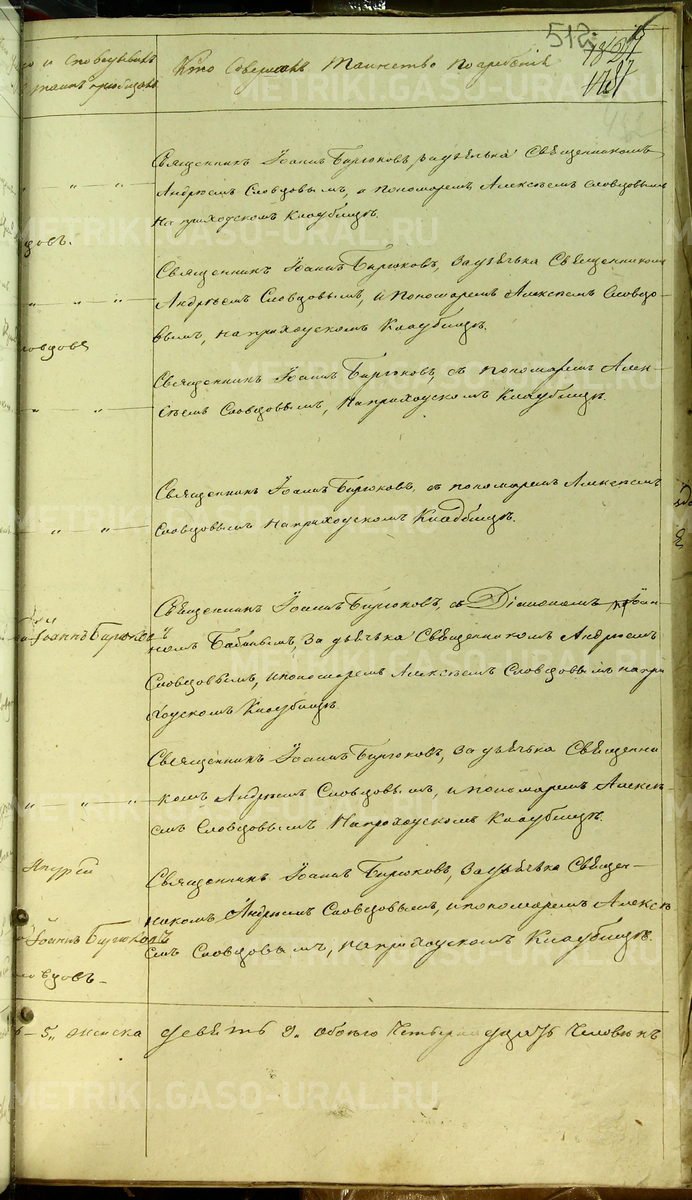 512
Кто совершалъ Таинство погребенія
и исповѣдывалъ
Священникъ Іоаннъ Бирюковъ, за дьячка Священникомъ
Андреемъ Словцовымъ, и пономаремъ Алексѣемъ Словцовымъ
на приходскомъ Кладбищѣ.
Священникъ Іоаннъ Бирюковъ, за дьячка Священникомъ
Андреемъ Словцовымъ, и пономаремъ Алексѣемъ Словцо-
вымъ, на приходскомъ Кладбищѣ.
Священникъ Іоаннъ Бирюковъ, съ пономаремъ Алек-
сѣемъ Словцовымъ, на приходскомъ Кладбищѣ.
Священникъ Іоаннъ Бирюковъ, съ пономаремъ Алексѣемъ
Словцовымъ на приходскомъ Кладбищѣ.
Іоаннъ Бирюковъ
Священникъ Іоаннъ Бирюковъ, съ Діакономъ Іоан-
номъ Бабинымъ, за дьячка Священникомъ Андреемъ
Словцовымъ, и пономаремъ Алексѣемъ Словцовымъ на при
ходскомъ Кладбищѣ.
Священникъ Іоаннъ Бирюковъ, за дьячка Священни
комъ Андреемъ Словцовымъ, и пономаремъ Алексѣ-
емъ Словцовымъ на приходскомъ Кладбищѣ.
Андрей
Священникъ Іоаннъ Бирюковъ, за дьячка Священ-
никомъ Андреемъ Словцовымъ, и пономаремъ Алексѣ
емъ Словцовымъ, на приходскомъ Кладбищѣ.
Іоаннъ Бирюковъ
5,, женска девять 9,, обоего четырнадцать Человѣкъ
METRIKI.GASO-URAL.RU